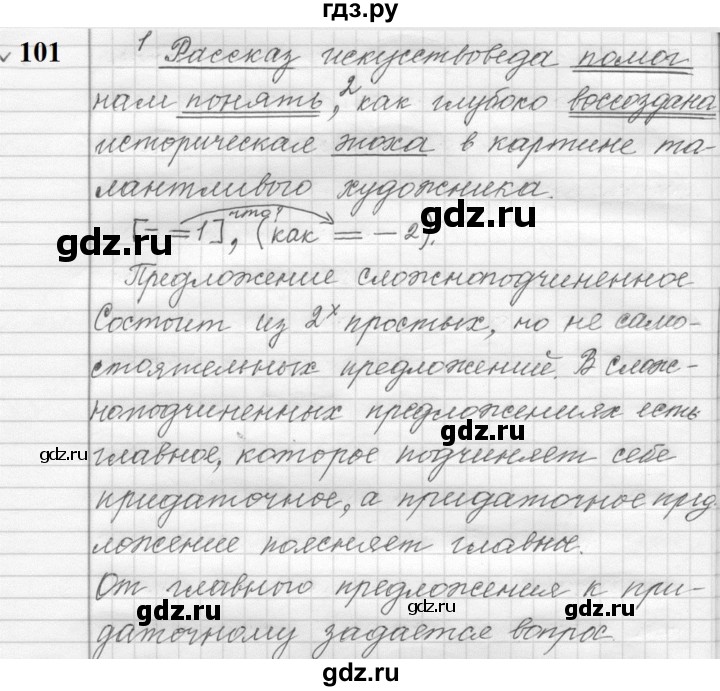 гдз.ру
101
1 Рассказ искусствоведа помог
нам понять,2 как глубоко воссоздана
историческая эпоха в картине та-
лантливого художника.
что?
[− = 1], (как = − 2).
gdz.ru gdz.ru
Предложение сложноподчиненное
Состоит из 2х простых, но не само-
gdz.ru
стоятельных предложений. В слож-
ноподчиненных предложениях есть
gdz.ru
gdz.ru
главное, которое подчиняет себе
gdz.ru
придаточное, а придаточное пред
ложение поясняет главное.
gdz.ru
От главного предложения к при-
gdz.ru gdz.ru
даточному задается вопрос
gdz.ru